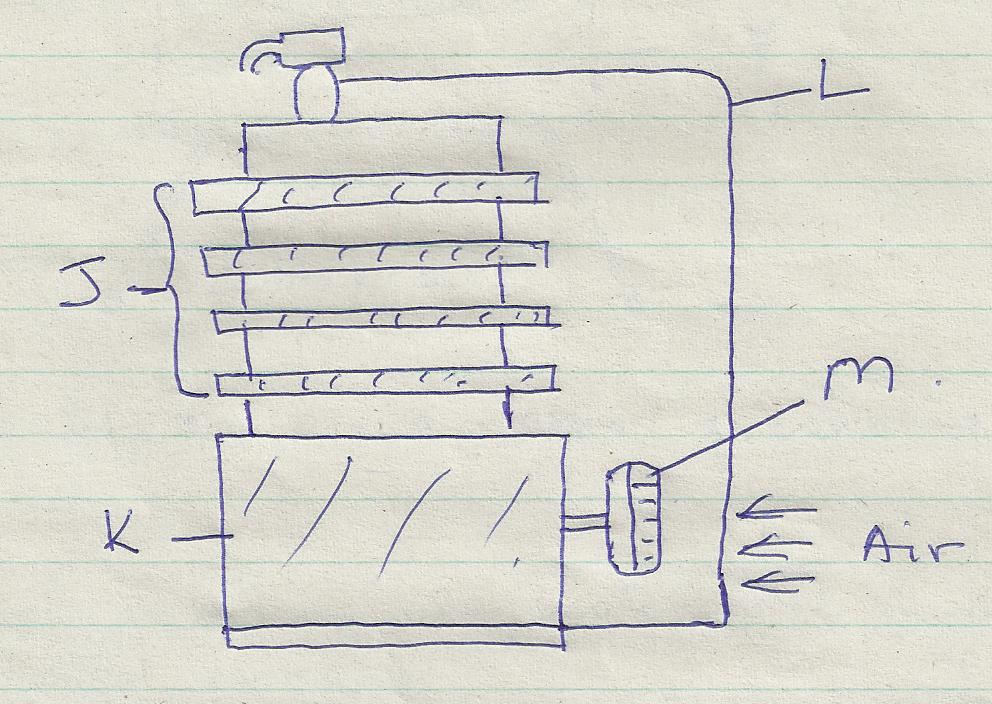 L
J
M.
K
Air